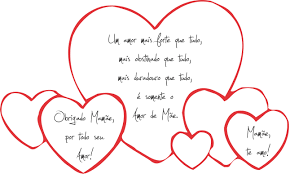 Um amor mais forte que tudo,
mais obstinado que tudo,
mais duradouro que tudo,
é somente o
Amor de Mãe.
Obrigado Mamãe,
por todo seu
Amor!
Mamãe,
te amo!